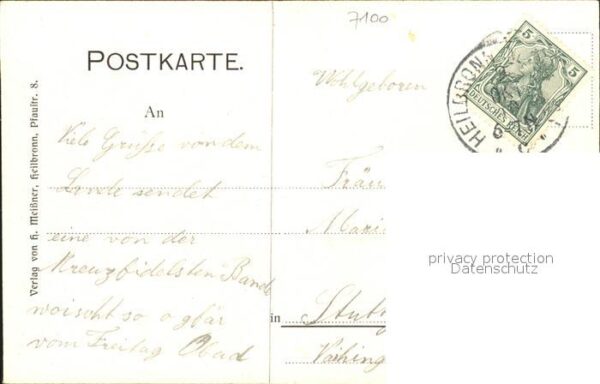 7100
POSTKARTE.
An
Viele Grüße von dem
Lande sendet
eine von der
Kreuzfidelsten Bande
woischt so ogfär
vom Freitag Obad
Verlag von H. Meißner, Heilbronn, Pfaustr. 8.
Wohlgeboren
Fräu
Marie
in Stutt
Vaihing
5 5
DEUTSCHES
HEILBRONN
privacy protection
Datenschutz